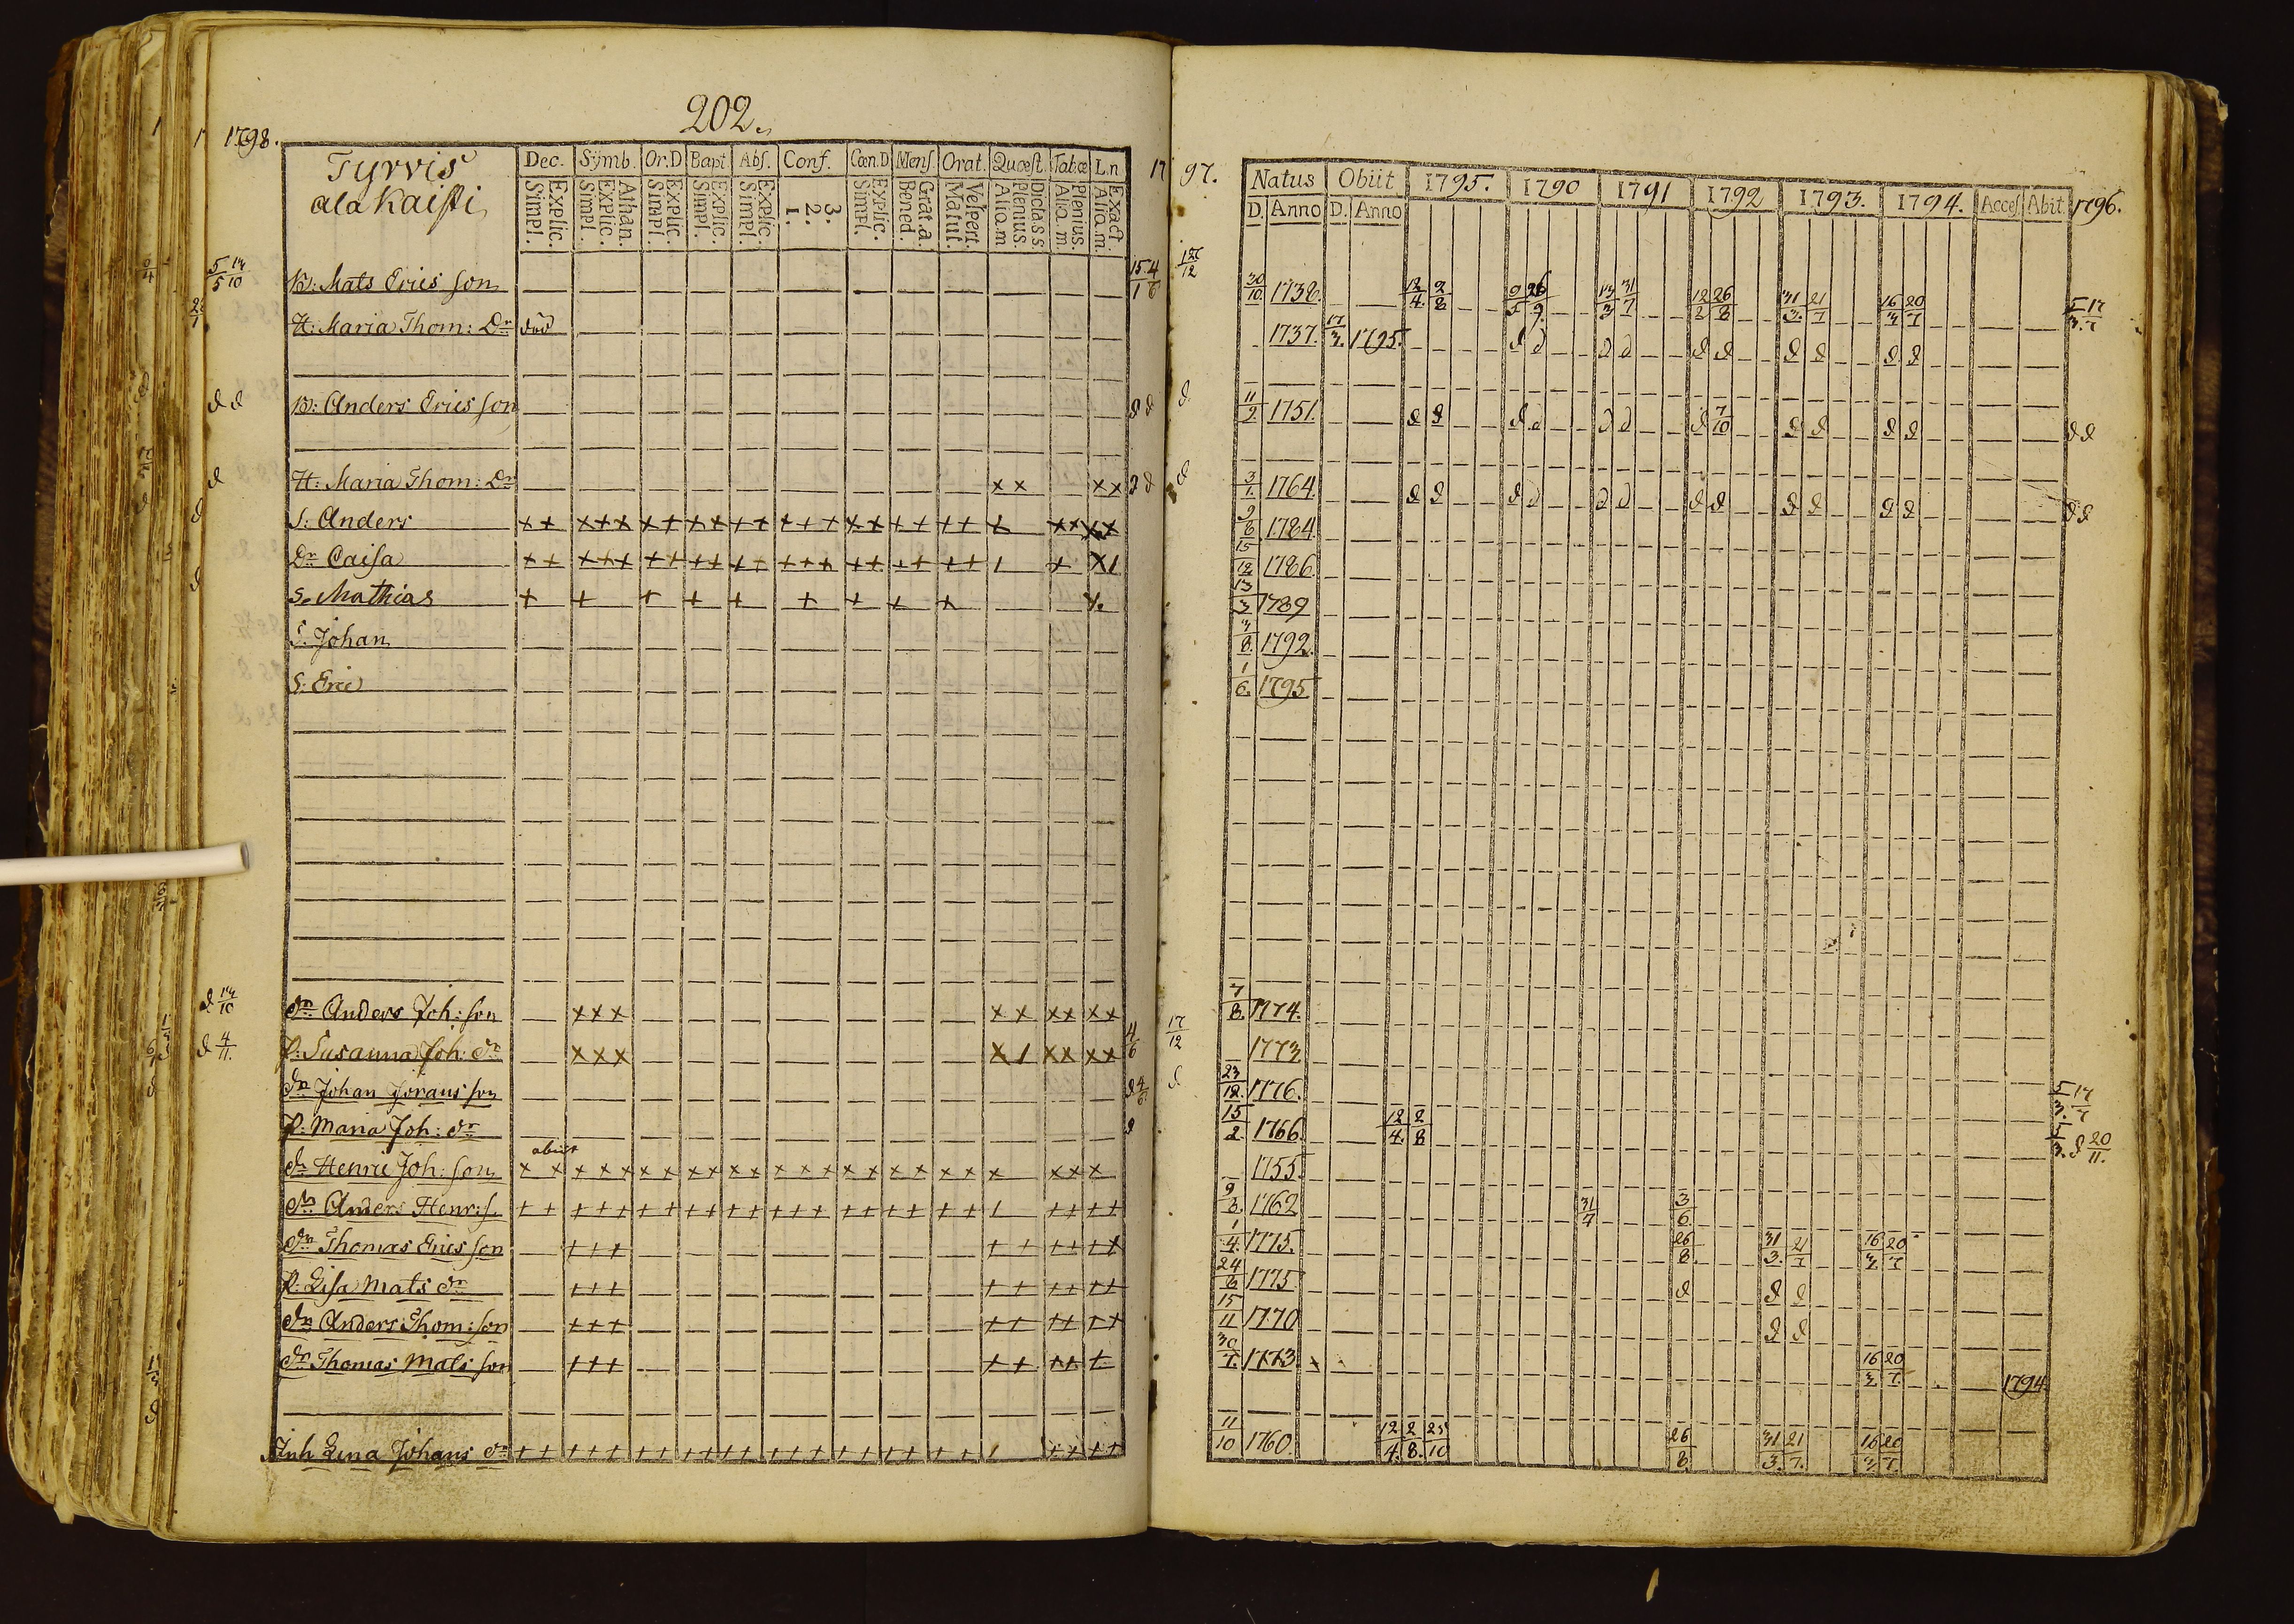 202.
1798.
Tyrvis
ala Kaisti
Dec. Symb. Or.D Bapt. Abs. Conf. Cœn.D Mens. Orat. Quæst. Tabæ L.n
Explic. Simpl. Athan. Explic. Simpl. Explic. Simpl. Explic. Simpl. Explic. Simpl. 3. 2. 1. Explic. Simpl. Grat.a. Bened. Vespert. Matut. Dicta.s.s. Plenius. Aliq.m Plenius. Aliq.m. Exact Aliq.m.
B: Mats Ericsson
H: Maria Thom: Dr död
B: Anders Ericsson
H: Maria Thom: Dr
S: Anders
Dr Caisa
S. Mathias
S. Johan
S: Eric
dr Anders Joh: son
P: Susanna Joh: dr
dr Johan Jöransson
P: Maria Joh: dr
dr Henric Joh: son abiit
dr Anders Henr: s.
dr Thomas Ericsson
P. Lisa Mats dr
dr Anders Thom: son
dr Thomas Mats son
Inh Lena Johans dr
1797.
Natus Obiit 1795. 1790 1791 1792 1793. 1794. Acces. Abit. 1796.
D. Anno D. Anno
30/10. 1738. 12/4. 2/8 31/7 12/2 26/8 31/3. 21/7 16/3 20/7 5/3. 17/7
1737. 17/3. 1795. d d d d d d d d d d
11/2. 1751. d d d d d d d 7/10 d d d d d d
3/1. 1764. d d d d d d d d d d d d d d
9/8 1784.
15/12 1786.
13/3 1789
3/8. 1792.
1/6. 1795
7/8. 1774.
1773.
23/12. 1776. 5/3. 17/7
15/2. 1766. 12/4. 2/8 5/3. d 20/11.
1755.
9/8. 1762 31/7 3/6
1/4. 1775. 26/8. 31/3. 21/7 16/3. 20/7
24/6 1775 d d d
15/11 1770 d d
30/7. 1773 16/3. 20/7. 1794.
11/10 1760. 12/4. 2/8. 25/10 26/8 31/3. 21/7. 16/3. 20/7.